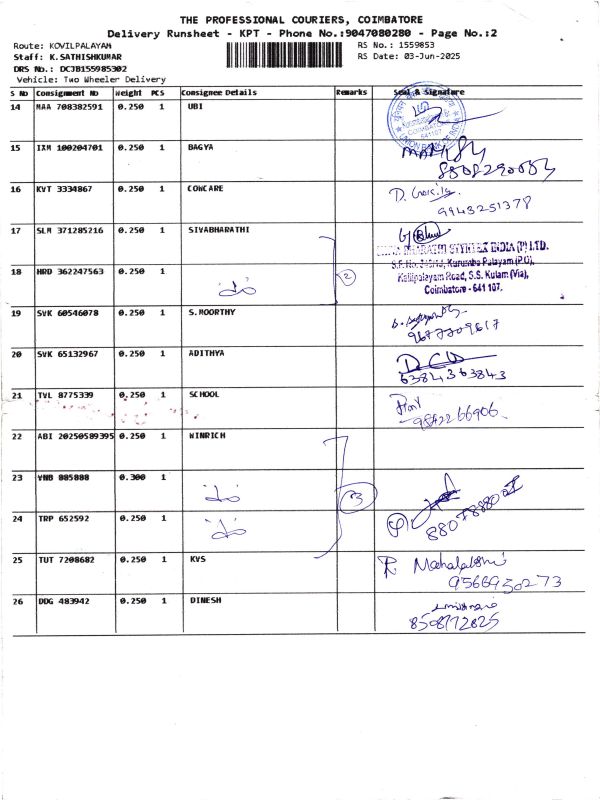 THE PROFESSIONAL COURIERS, COIMBATORE
Delivery Runsheet - KPT - Phone No.:9047080280 - Page No.:2
Route: KOVILPALAYAM
RS No.: 1559853
Staff: K.SATHISHKUMAR
RS Date: 03-Jun-2025
DRS No.: DCJB155985302
Vehicle: Two Wheeler Delivery
S No Consignment No Weight PCS Consignee Details Remarks Seal & Signature
14 MAA 708382591 0.250 1 UBI
COIMBATORE
641107
UNION BANK OF INDIA
15 IXM 100204701 0.250 1 BAGYA
16 KVT 3334867 0.250 1 CONCARE
9943251378
17 SLM 371285216 0.250 1 SIVABHARATHI
BHARATHI INDIA (P) LTD.
Kurumba Palayam (P.O),
18 HRD 362247563 0.250 1 2
Kalipalayam Road, S.S. Kulam (Via),
Coimbatore - 641 107.
19 SVK 60546078 0.250 1 S.MOORTHY
9677209617
20 SVK 65132967 0.250 1 ADITHYA
6384363843
21 TVL 8775339 0.250 1 SCHOOL
9842266906
22 ABI 20250589395 0.250 1 WINRICH
23 VNB 885888 0.300 1 3
24 TRP 652592 0.250 1
25 TUT 7208682 0.250 1 KVS
R Mahalakshmi
9566950273
26 DDG 483942 0.250 1 DINESH
8508772825